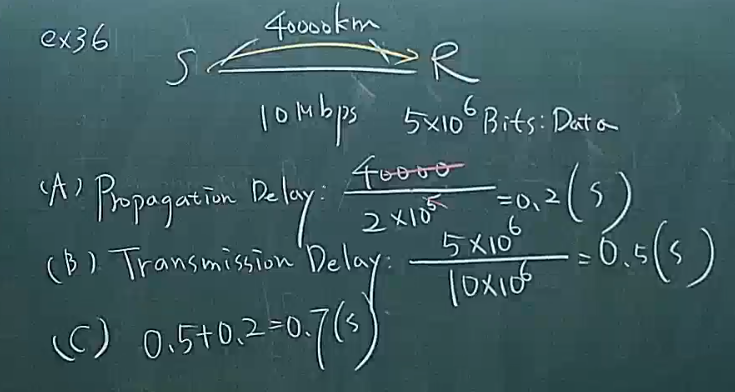 ex36
40000km
S R
10Mbps 5×10⁶ Bits:Data
(A) Propagation Delay: 40000 / 2×10⁵ = 0.2(s)
(B) Transmission Delay: 5×10⁶ / 10×10⁶ = 0.5(s)
(C) 0.5+0.2=0.7(s)